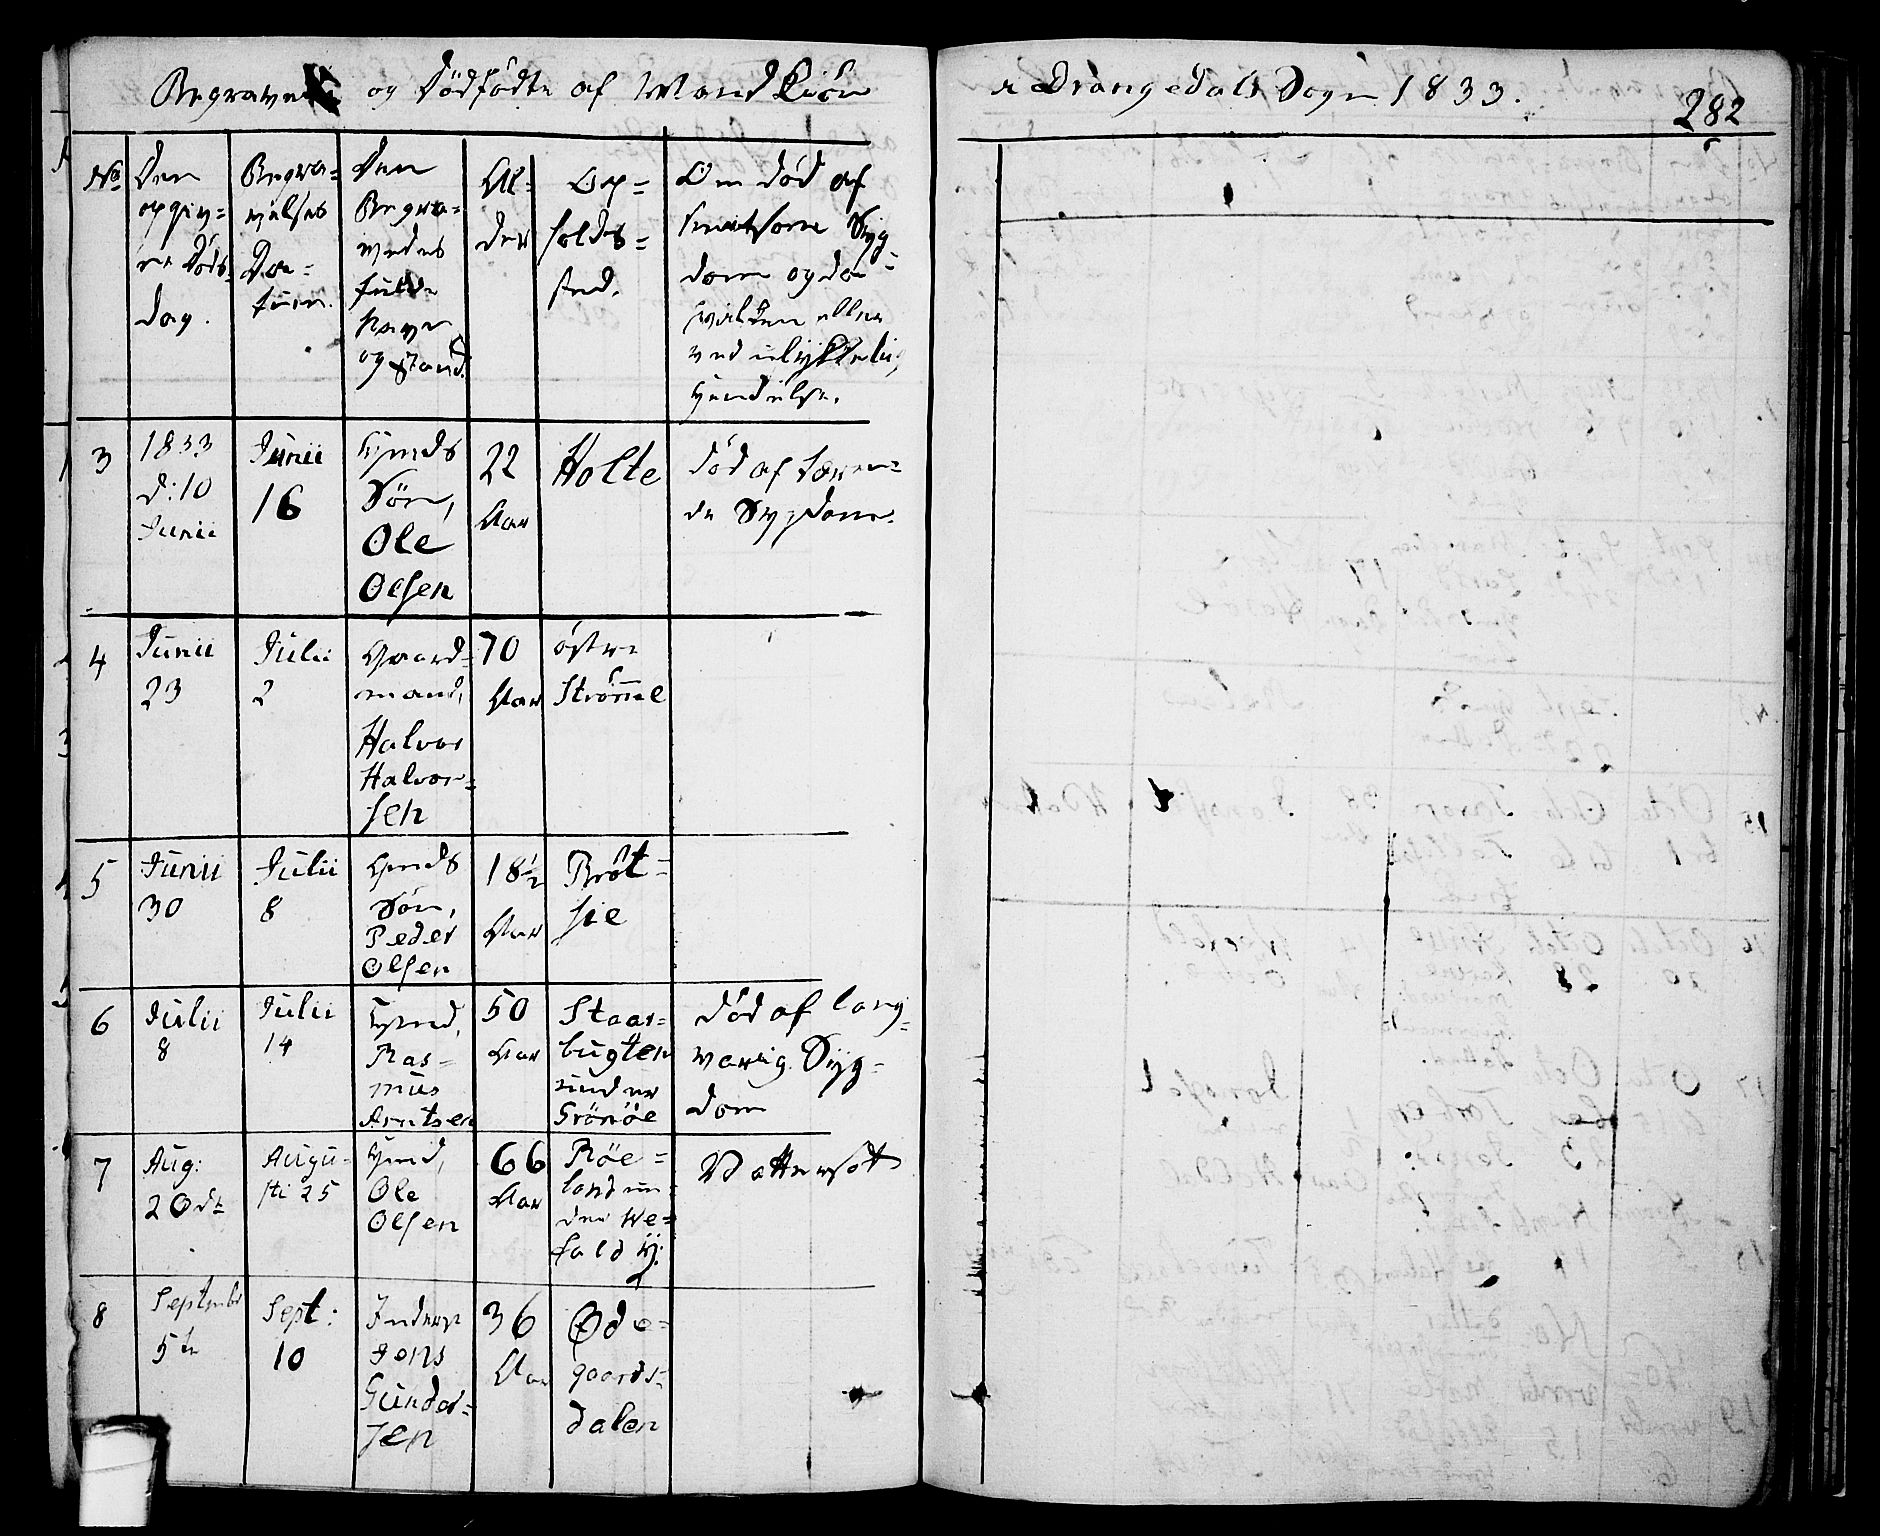 Begravede og Dödfödte af Mandkiön
i Drangedals Sogn 1833.
282
No
Den
opgiv-
ne Döds-
dag.
Begra-
velses
Da-
tum.
Den
Begra-
vedes
fulde
Navn
og Stand.
Al-
der
Op-
holds-
sted.
Om död af
smitsom Syg-
dom
eller
ved ulykkelig
Hendelse.
3
1833
d: 10
Junii
Junii
16
Hmds
Sön,
Ole
Olsen
22
Aar
Holte
död af
Sygdom.
4
Junii
23
Julii
2
Gaard-
mand,
Halvor
Halvor-
sen
70
Aar
östre
Strömme
5
Junii
30
Julii
8
Gmds
Sön,
Peder
Olsen
18½
Aar
Bröt-
sie
6
Julii
8
Julii
14
Hmd,
Ras-
mus
Arntsen
50
Aar
Staar-
bugten
under
Grönöe
död af lang-
varig Syg-
dom
7
Aug:
20de
Augu-
sti 25
Hmd,
Ole
Olsen
66
Aar
Röe-
land un-
der We-
fald
Vattersot
8
Septmbr
5te
Sept:
10
Inderst
Jens
Gunder-
sen
36
Aar
Øde-
gaards-
dalen